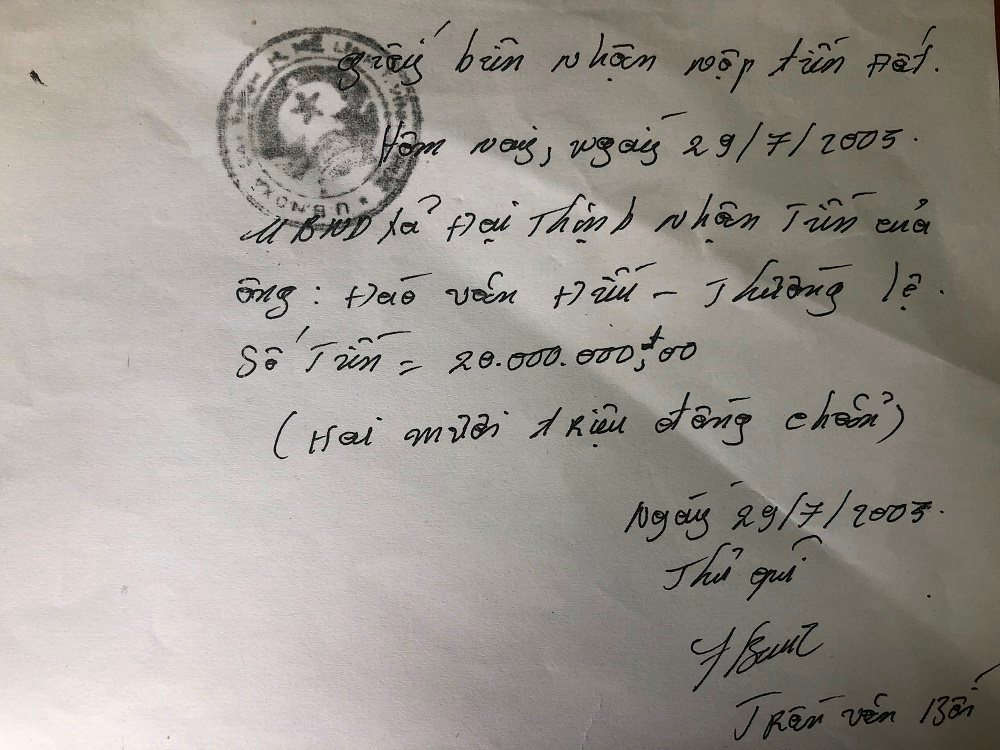 Giấy biên nhận nộp tiền đất.
Hôm nay, ngày 29/7/2005.
UBND xã Đại Thịnh nhận Tiền của
ông: Đào văn - Thường lệ.
Số Tiền = 20.000.000,đ00
(Hai mươi triệu đồng chẵn)
Ngày 29/7/2005.
Thủ quỹ
Trần văn
U.B.N.D XÃ